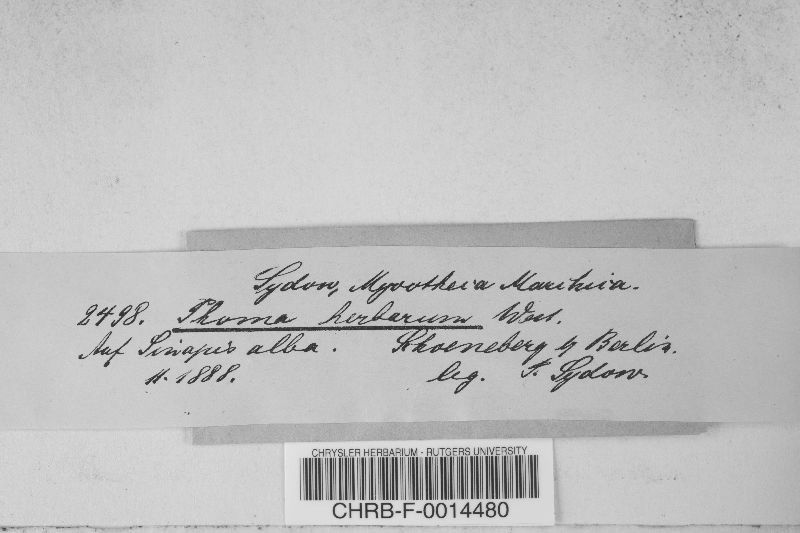 Sydow, Mycotheca Marchica.
2498. Phoma herbarum West.
Auf Sinapis alba. Schoeneberg b/ Berlin.
11. 1888. leg. P. Sydow.
CHRYSLER HERBARIUM - RUTGERS UNIVERSITY
CHRB-F-0014480